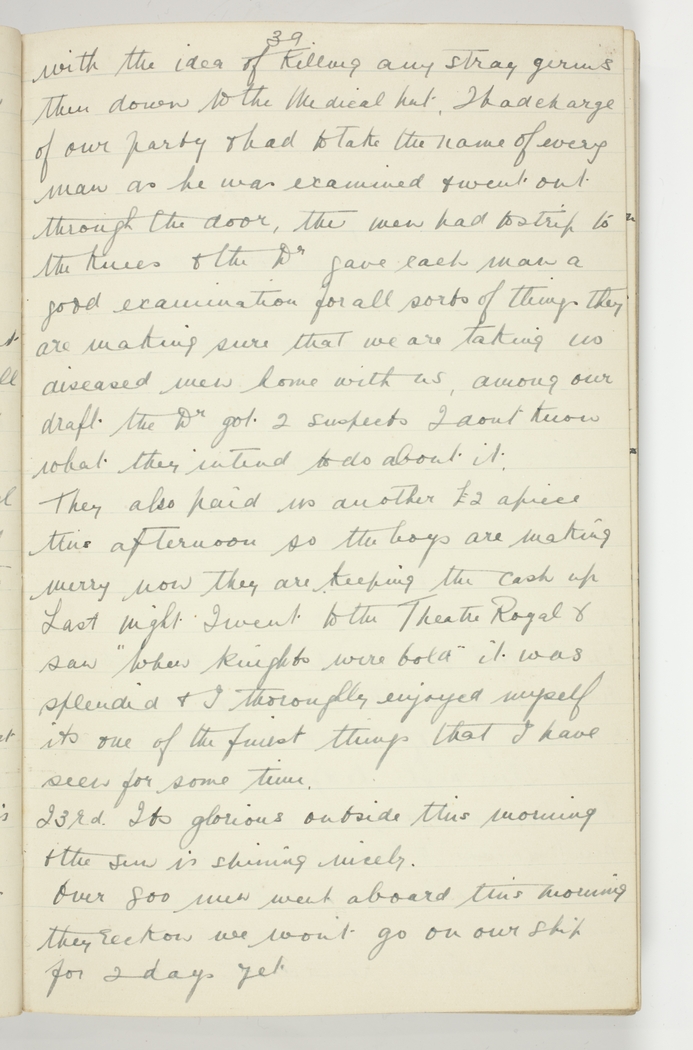 39.
with the idea of killing any stray germs
then down to the Medical hut, I had charge
of our party & had to take the name of every
man as he was examined & went out
through the door, the men had to strip to
the knees & the Dr gave each man a
good examination for all sorts of things they
are making sure that we are taking no
diseased men home with us, among our
draft the Dr got 2 suspects I dont know
what they intend to do about it.
They also paid us another £2 apiece
this afternoon so the boys are making
merry now they are keeping the cash up
Last night I went to the Theatre Royal &
saw "When Knights were bold" it was
splendid & I thoroughly enjoyed myself
its one of the finest things that I have
seen for some time.
23rd. Its glorious outside this morning
& the sun is shining nicely.
Over 800 men went aboard this morning
they reckon we wont go on our ship
for 2 days yet